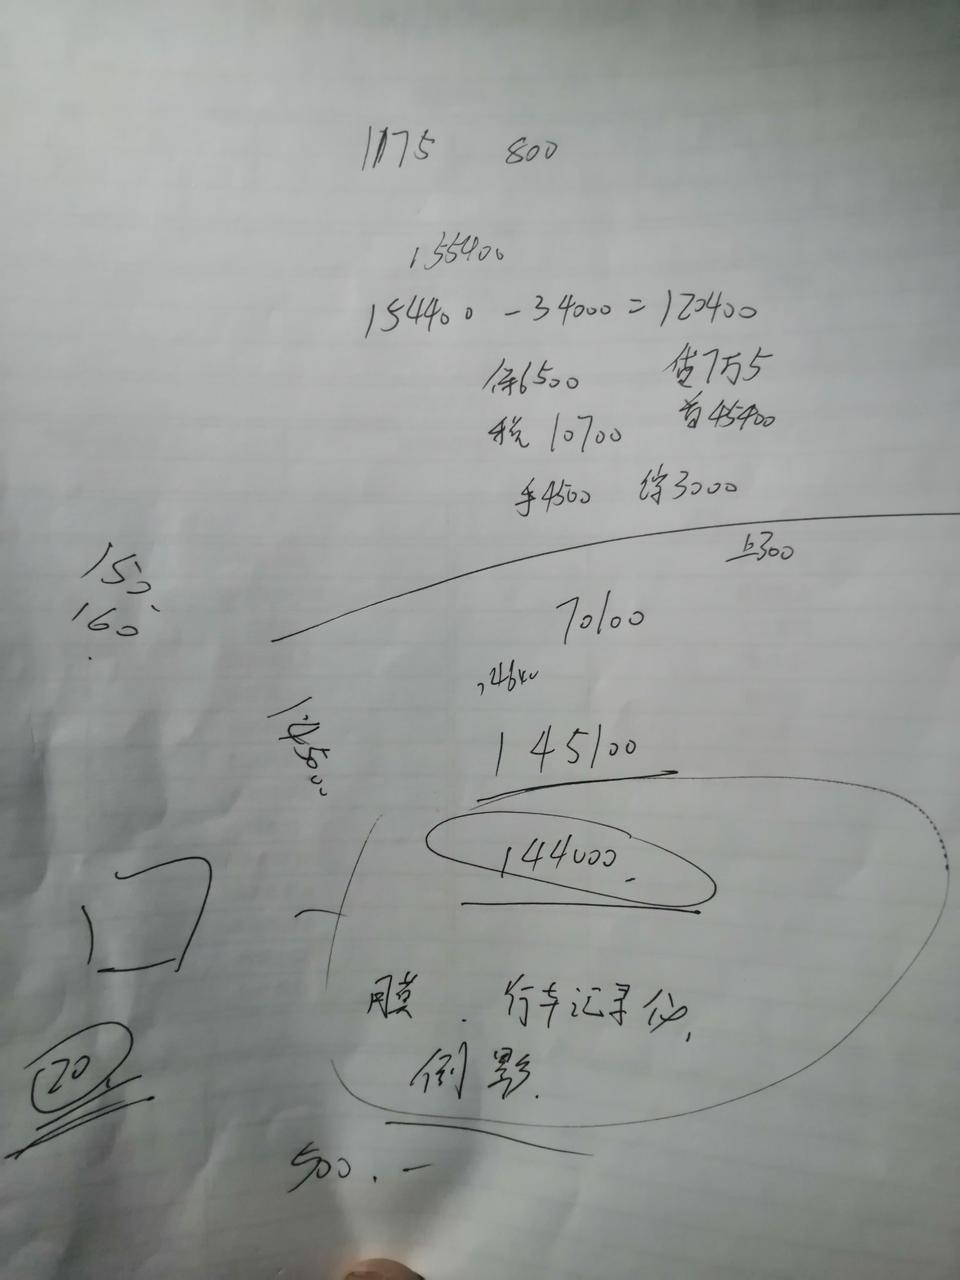 1175 800
155400
154400-34000=120400
保6500 贷7万5
税10700 首45400
手4500 综3000
上300
150
160
70100
145000
145100
144000.
膜.行车记录仪,
倒影.
20.
500.-